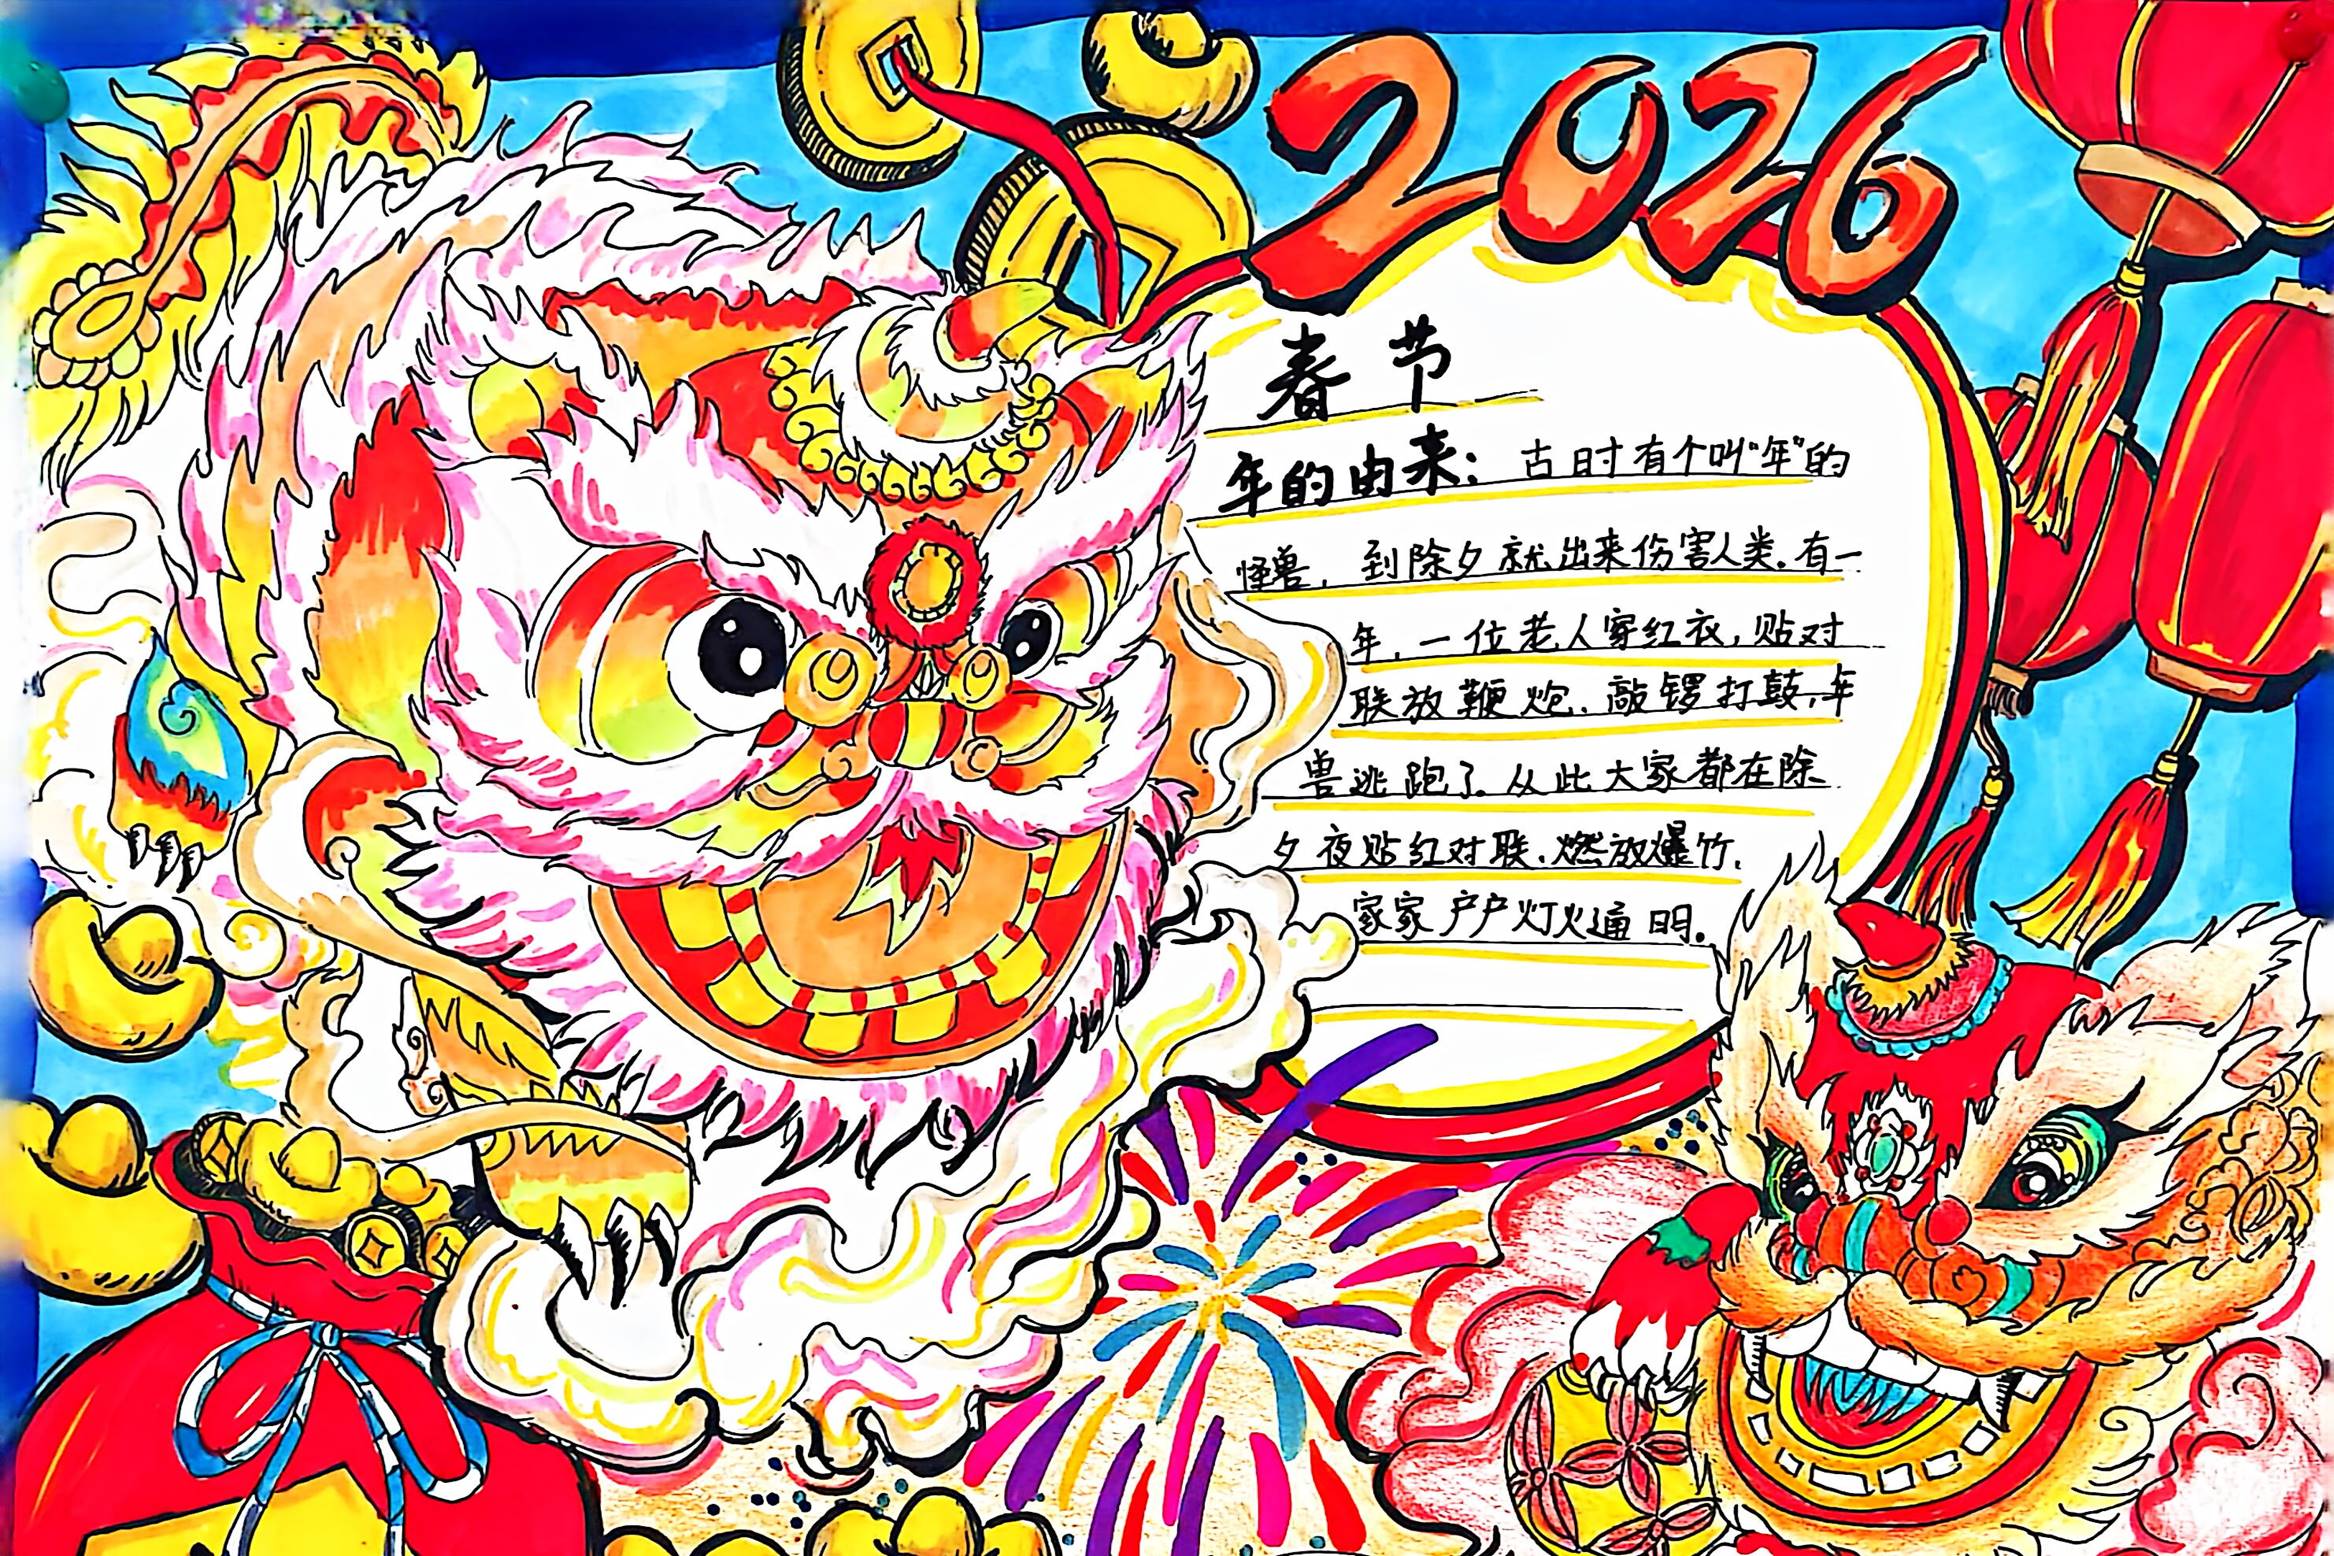 2026
春节
年的由来：古时有个叫“年”的
怪兽，到除夕就出来伤害人类。有一
年，一位老人穿红衣，贴对
联放鞭炮、敲锣打鼓，年
兽逃跑了。从此大家都在除
夕夜贴红对联、燃放爆竹、
家家户户灯火通明。